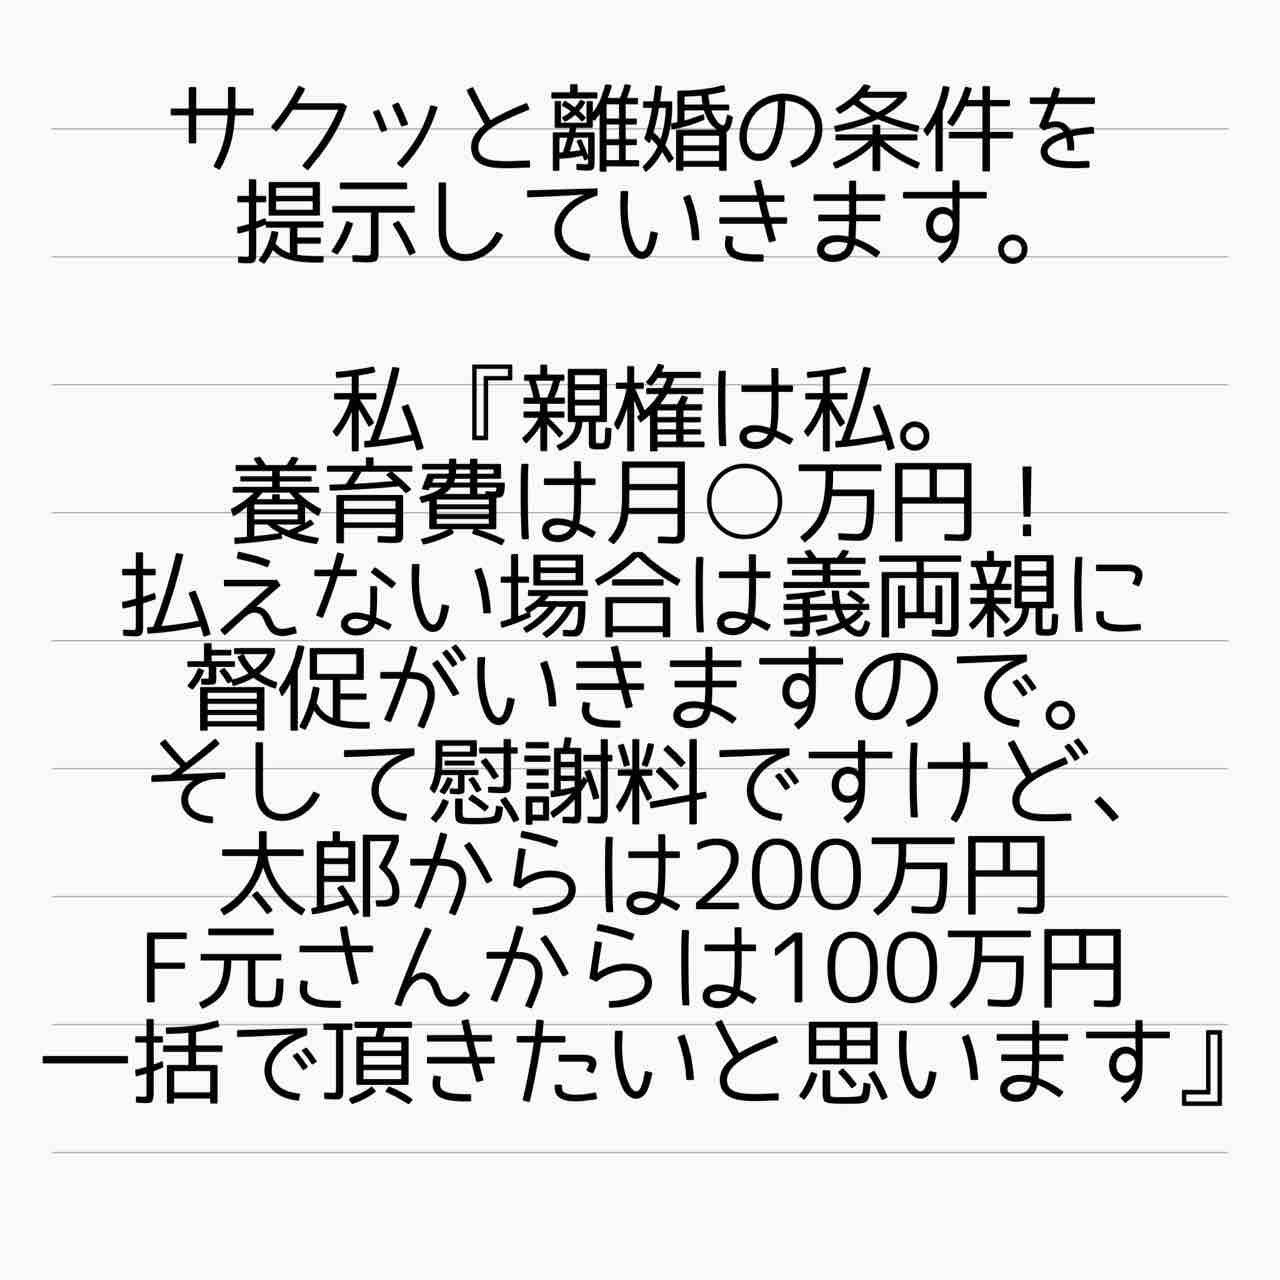 サクッと離婚の条件を
提示していきます。
私『親権は私。
養育費は月○万円！
払えない場合は義両親に
督促がいきますので。
そして慰謝料ですけど、
太郎からは200万円
F元さんからは100万円
一括で頂きたいと思います』